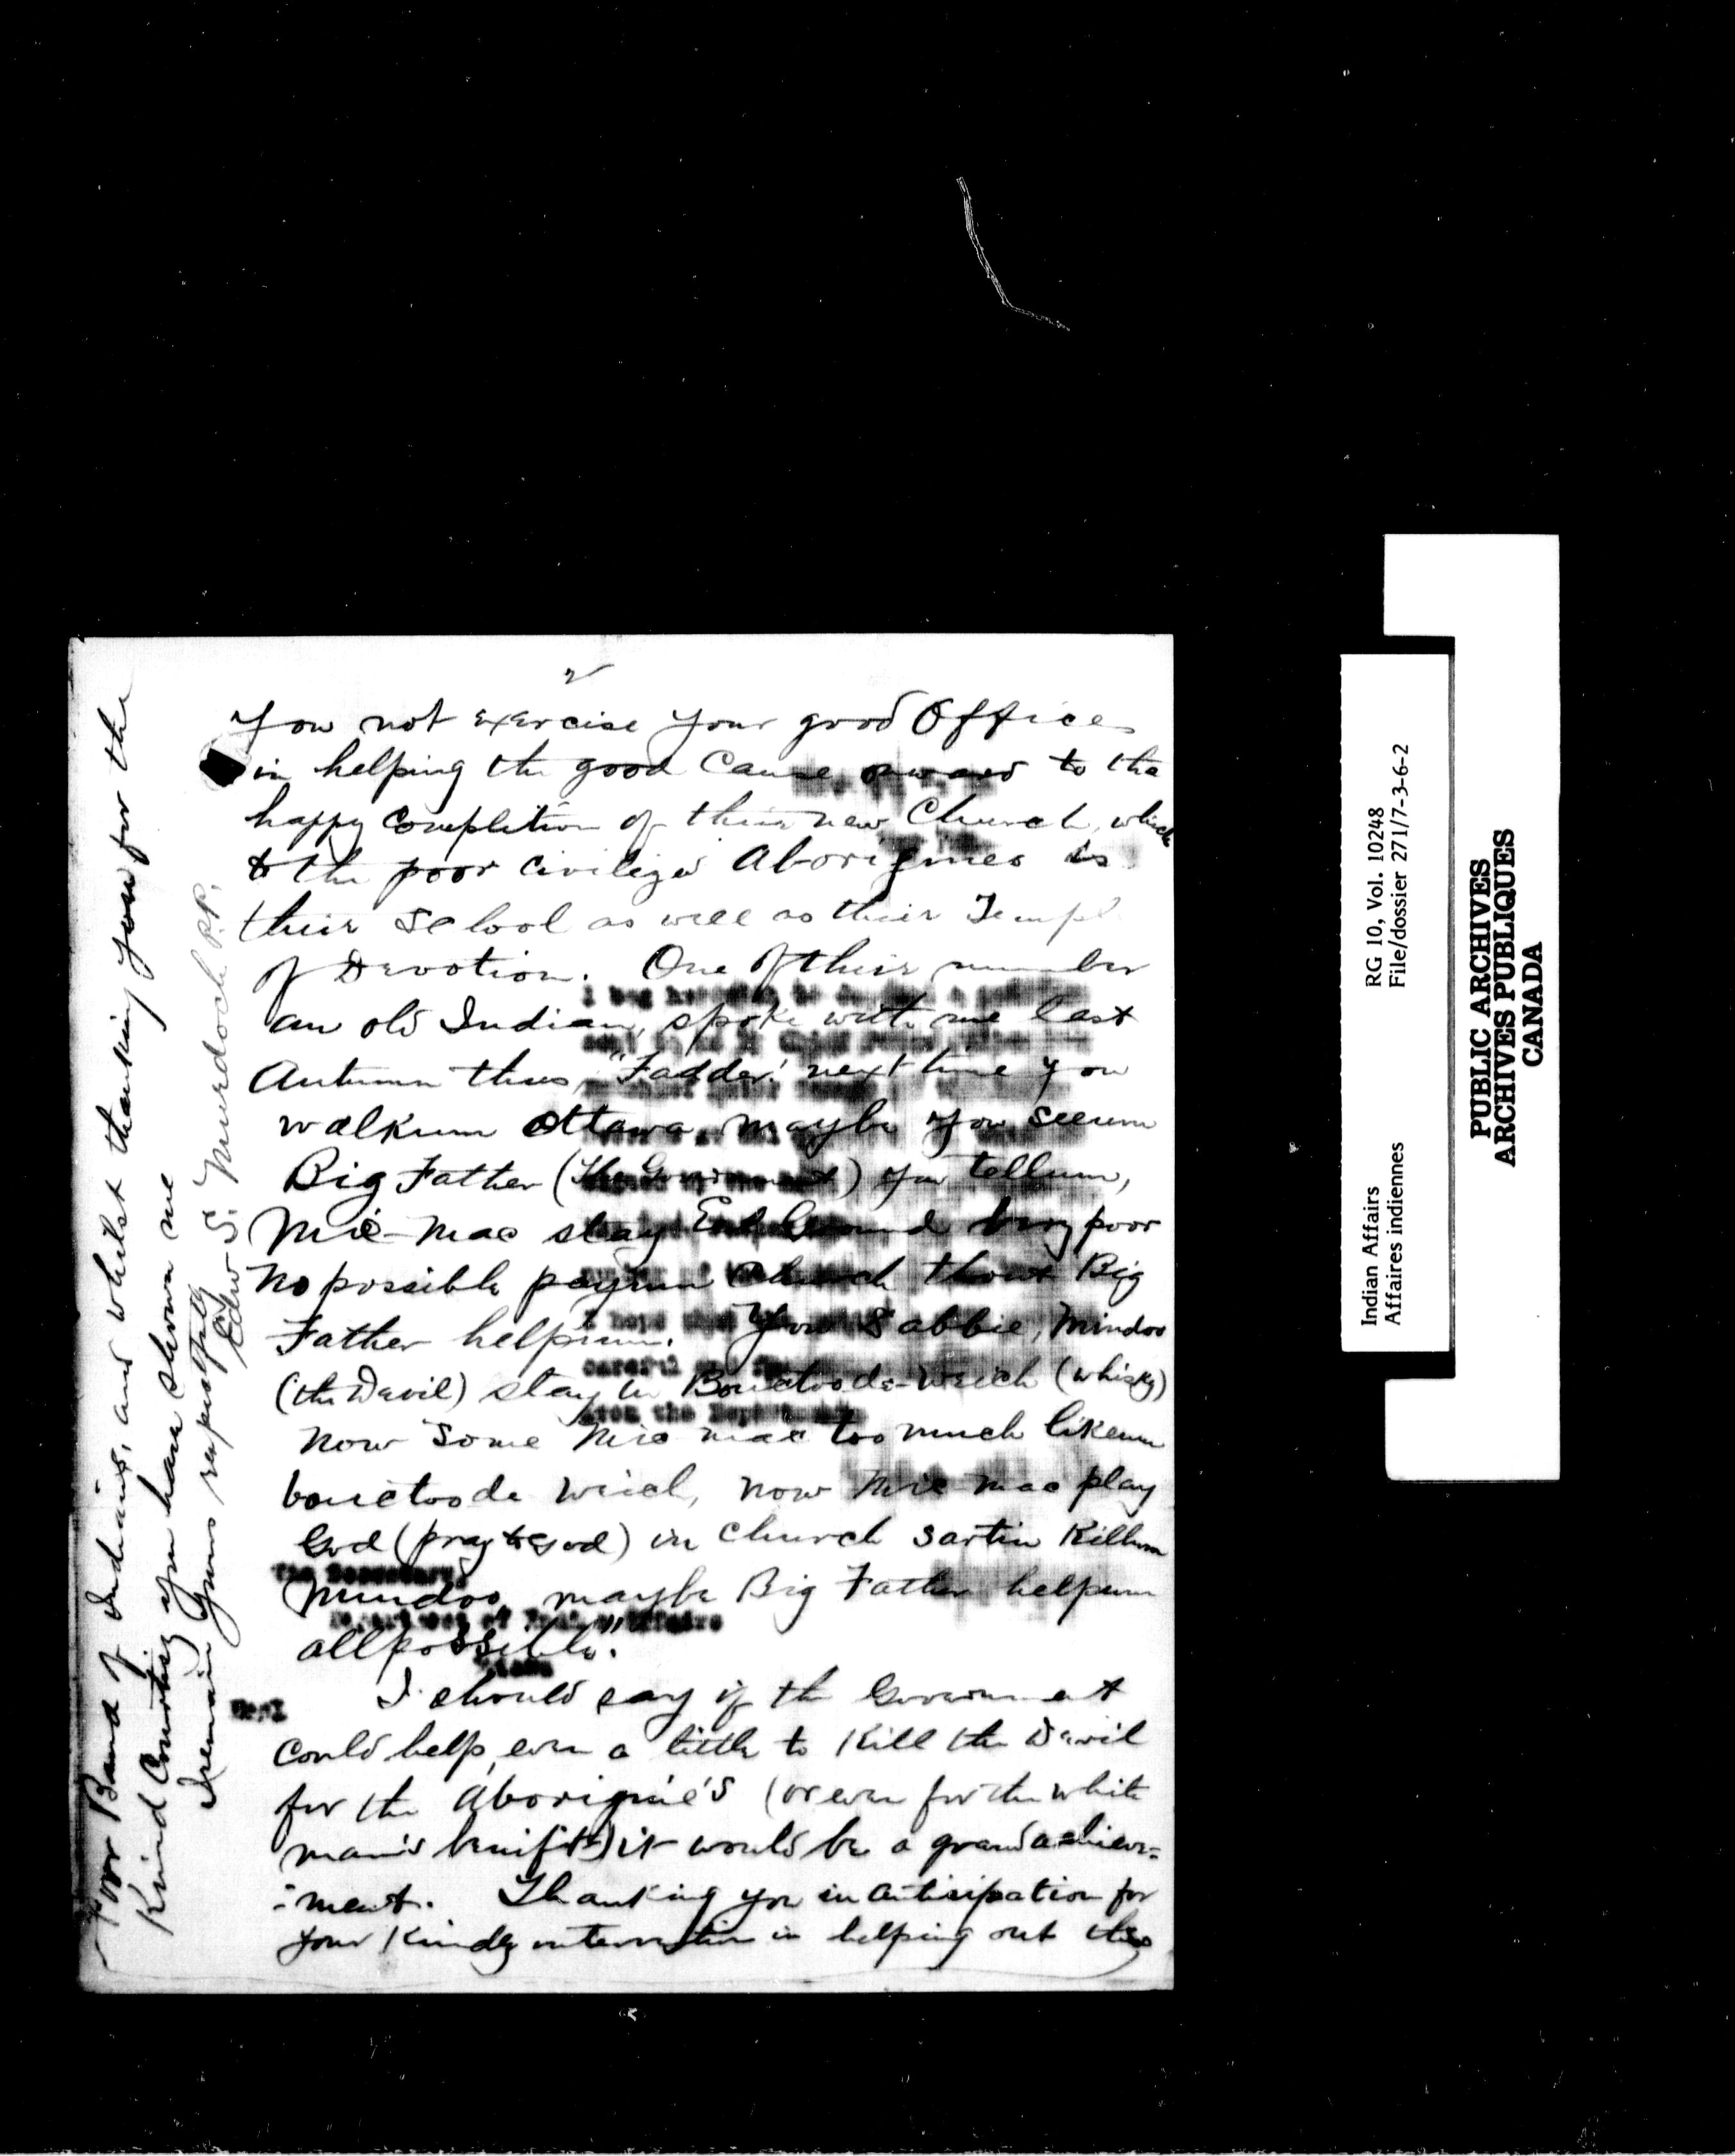 2
you not exercise your good Offices
in helping the good Cause onward to the
happy Completion of their new Church, which
to the poor Civilized Aborigines is
their School as well as their Templ
of Devotion. One of their number
an old Indian, spoke with me last
Autumn thus, "Fadder! next time you
walkum Ottawa, maybe you seeum
Big Father (The Government) you tellum,
Mic-Mac stay Eel Ground bery poor
No possible payum Church thout Big
Father helpum. You Sabbie, Mindoo
(the Devil) stay in Bouctoode-weich (whisky)
now Some Mic mac too much likeum
bouctoode weich, now Mic mac play
God (pray to God) in Church sartin Killum
Mindoo, maybe Big Father helpum
all possible."
I should say if the Government
could help, even a little to Kill the Devil
for the Aborigine's (or even for the white
man's benifit) it would be a grand achieve=
=ment. Thanking you in anticipation for
your Kindly intervention in helping out this
poor Band of Indians, and whilst thanking you for the
Kind Courtesy you have shown me
I remain Yours respectfully
Edw. S. Murdoch P.P.
I beg
I hope
careful
upon the Department
The Secretary,
Department of Indian Affairs
Indian Affairs RG 10, Vol. 10248
Affaires indiennes File/dossier 271/7-3-6-2
PUBLIC ARCHIVES
ARCHIVES PUBLIQUES
CANADA